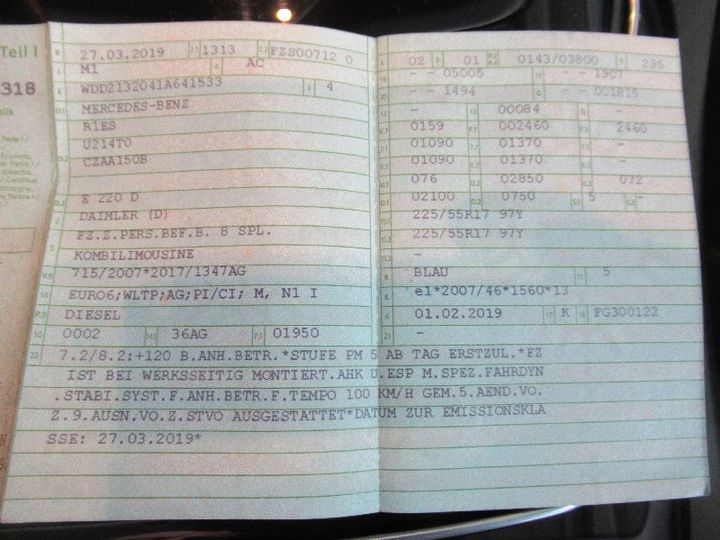 Teil I
318
27.03.2019 2.1 1313 2.2 FZS00712 0
M1 AC
WDD2132041A641533 4
MERCEDES-BENZ
R1ES
U214T0
CZAA150B
E 220 D
DAIMLER (D)
FZ.Z.PERS.BEF.B. 8 SPL.
KOMBILIMOUSINE
715/2007*2017/1347AG
EURO6;WLTP;AG;PI/CI; M, N1 I
DIESEL
10 0002 36AG 01950
02 01 0143/03800 235
- - 05005 - - 1907
- - 1494 - - 001815
- 00084 -
0159 002460 2460
01090 01370 -
01090 01370 -
076 02850 072
02100 0750 5 -
225/55R17 97Y
225/55R17 97Y
-
BLAU 5
e1*2007/46*1560*13
01.02.2019 K FG300122
-
22 7.2/8.2:+120 B.ANH.BETR.*STUFE PM 5 AB TAG ERSTZUL.*FZ
IST BEI WERKSSEITIG MONTIERT.AHK U.ESP M.SPEZ.FAHRDYN
.STABI.SYST.F.ANH.BETR.F.TEMPO 100 KM/H GEM.5.AEND.VO.
Z.9.AUSN.VO.Z.STVO AUSGESTATTET*DATUM ZUR EMISSIONSKLA
SSE: 27.03.2019*